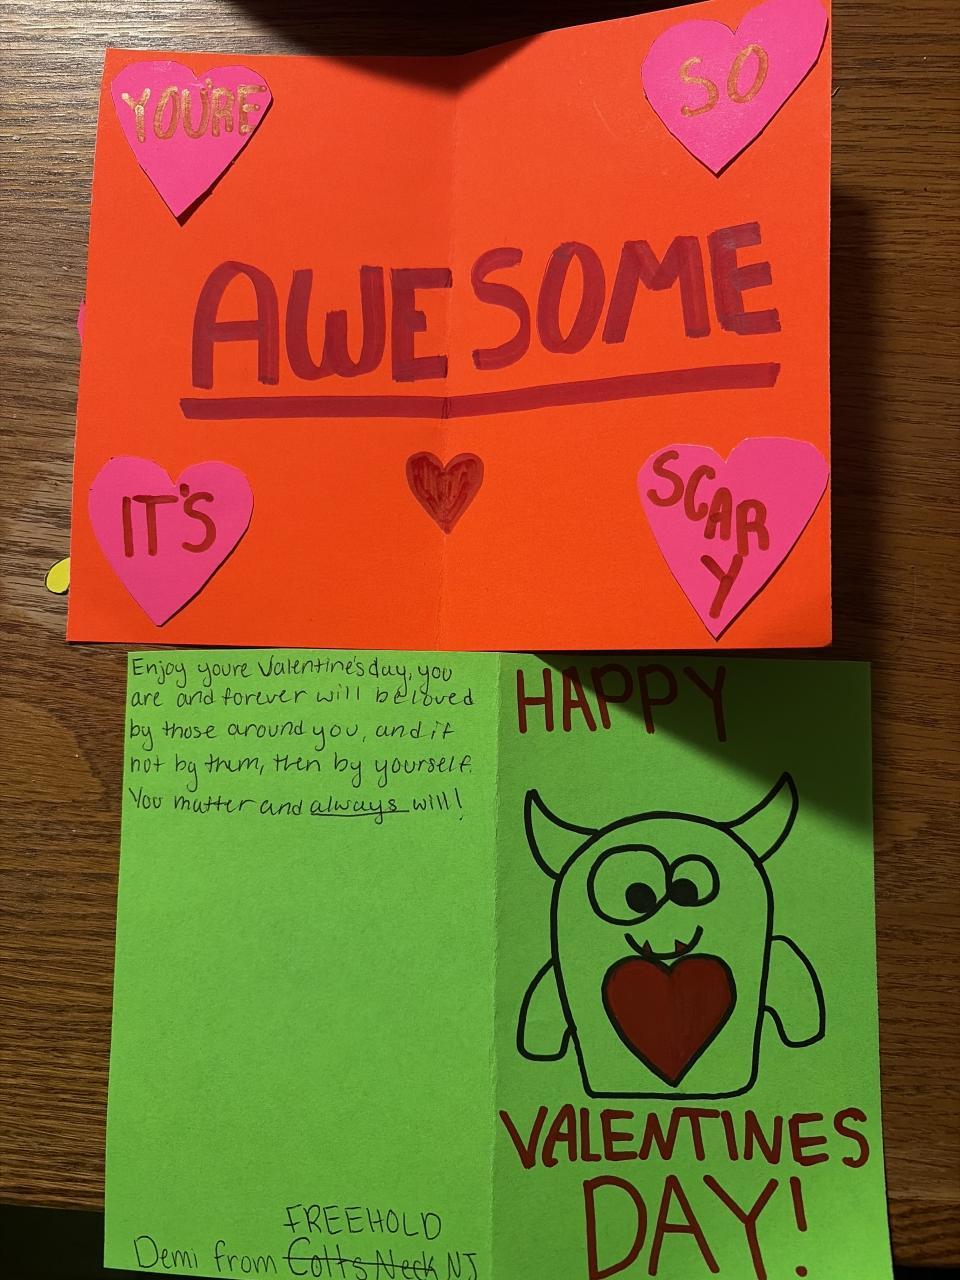 YOU'RE
SO
AWESOME
IT'S
SCAR
Y
Enjoy youre Valentine's day, you
are and forever will be loved
by those around you, and if
not by them, then by yourself.
You matter and always will!
FREEHOLD
Demi from Colts Neck NJ
HAPPY
VALENTINES
DAY!